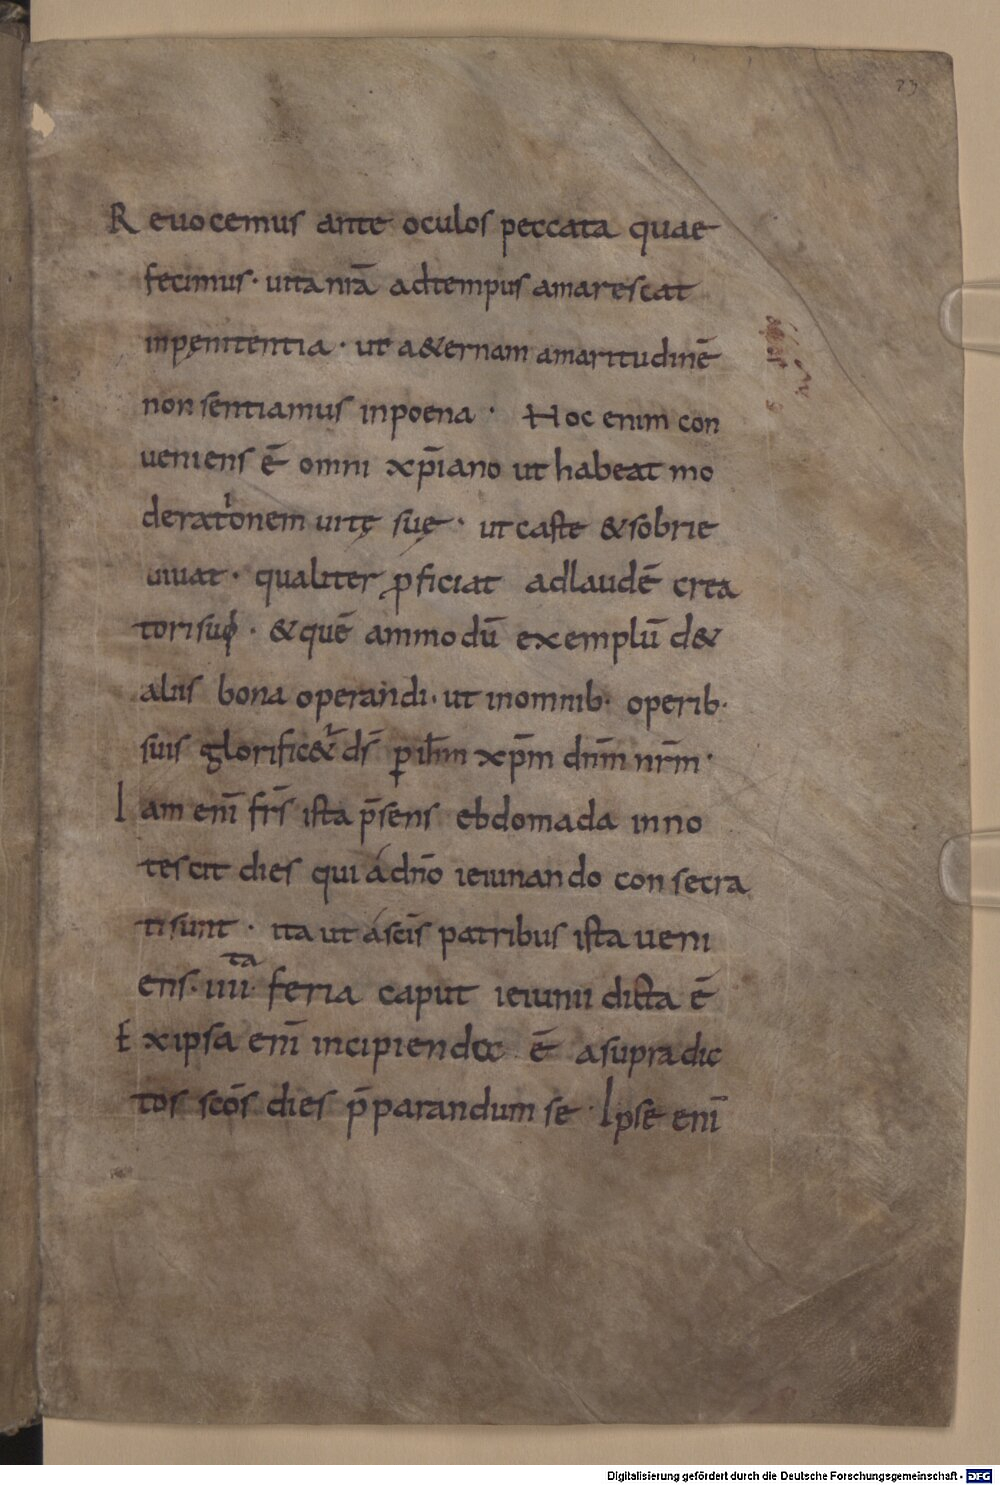 23
Reuocemus ante oculos peccata quae
fecimus· uita nr̄a adtempus amarescat
inpęnitentia· ut a&ernam amaritudinē
non sentiamus inpoena· Hoc enim con
ueniens ē omni xp̄iano ut habeat mo
derationem uitę suę· ut caste &sobrie
uiuat· qualiter ꝓficiat adlaudē crea
tori suo· &quē ammodū exemplū d&
aliis bona operandi· ut inomnib· operib·
suis glorific&ur ds̄ ꝑ ih̄m xp̄m dn̄m nr̄m·
Iam enī fr̄s ista p̄sens ebdomada inno
tescit dies qui ádn̄o ieiunando consecra
ti sunt· ita ut áscīs patribus ista ueni
ens· iiii ta feria caput ieiunii dicta ē
Exipsa enī incipiendoc ē asupradic
tos scōs dies p̄parandum se· Ipse enī
Digitalisierung gefördert durch die Deutsche Forschungsgemeinschaft - DFG